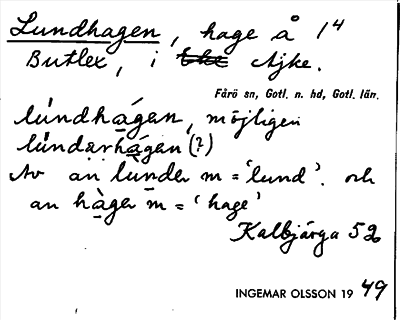 Lundhagen, hage å 1⁴
Butlex, i Ajke.
Fårö sn, Gotl. n. hd, Gotl. län.
lúndhágen, möjligen
lúndarhágen (?)
Av an lùnder m = 'lund'. och
an hàger m = 'hage'
Kalbjärga 52
INGEMAR OLSSON 19 49